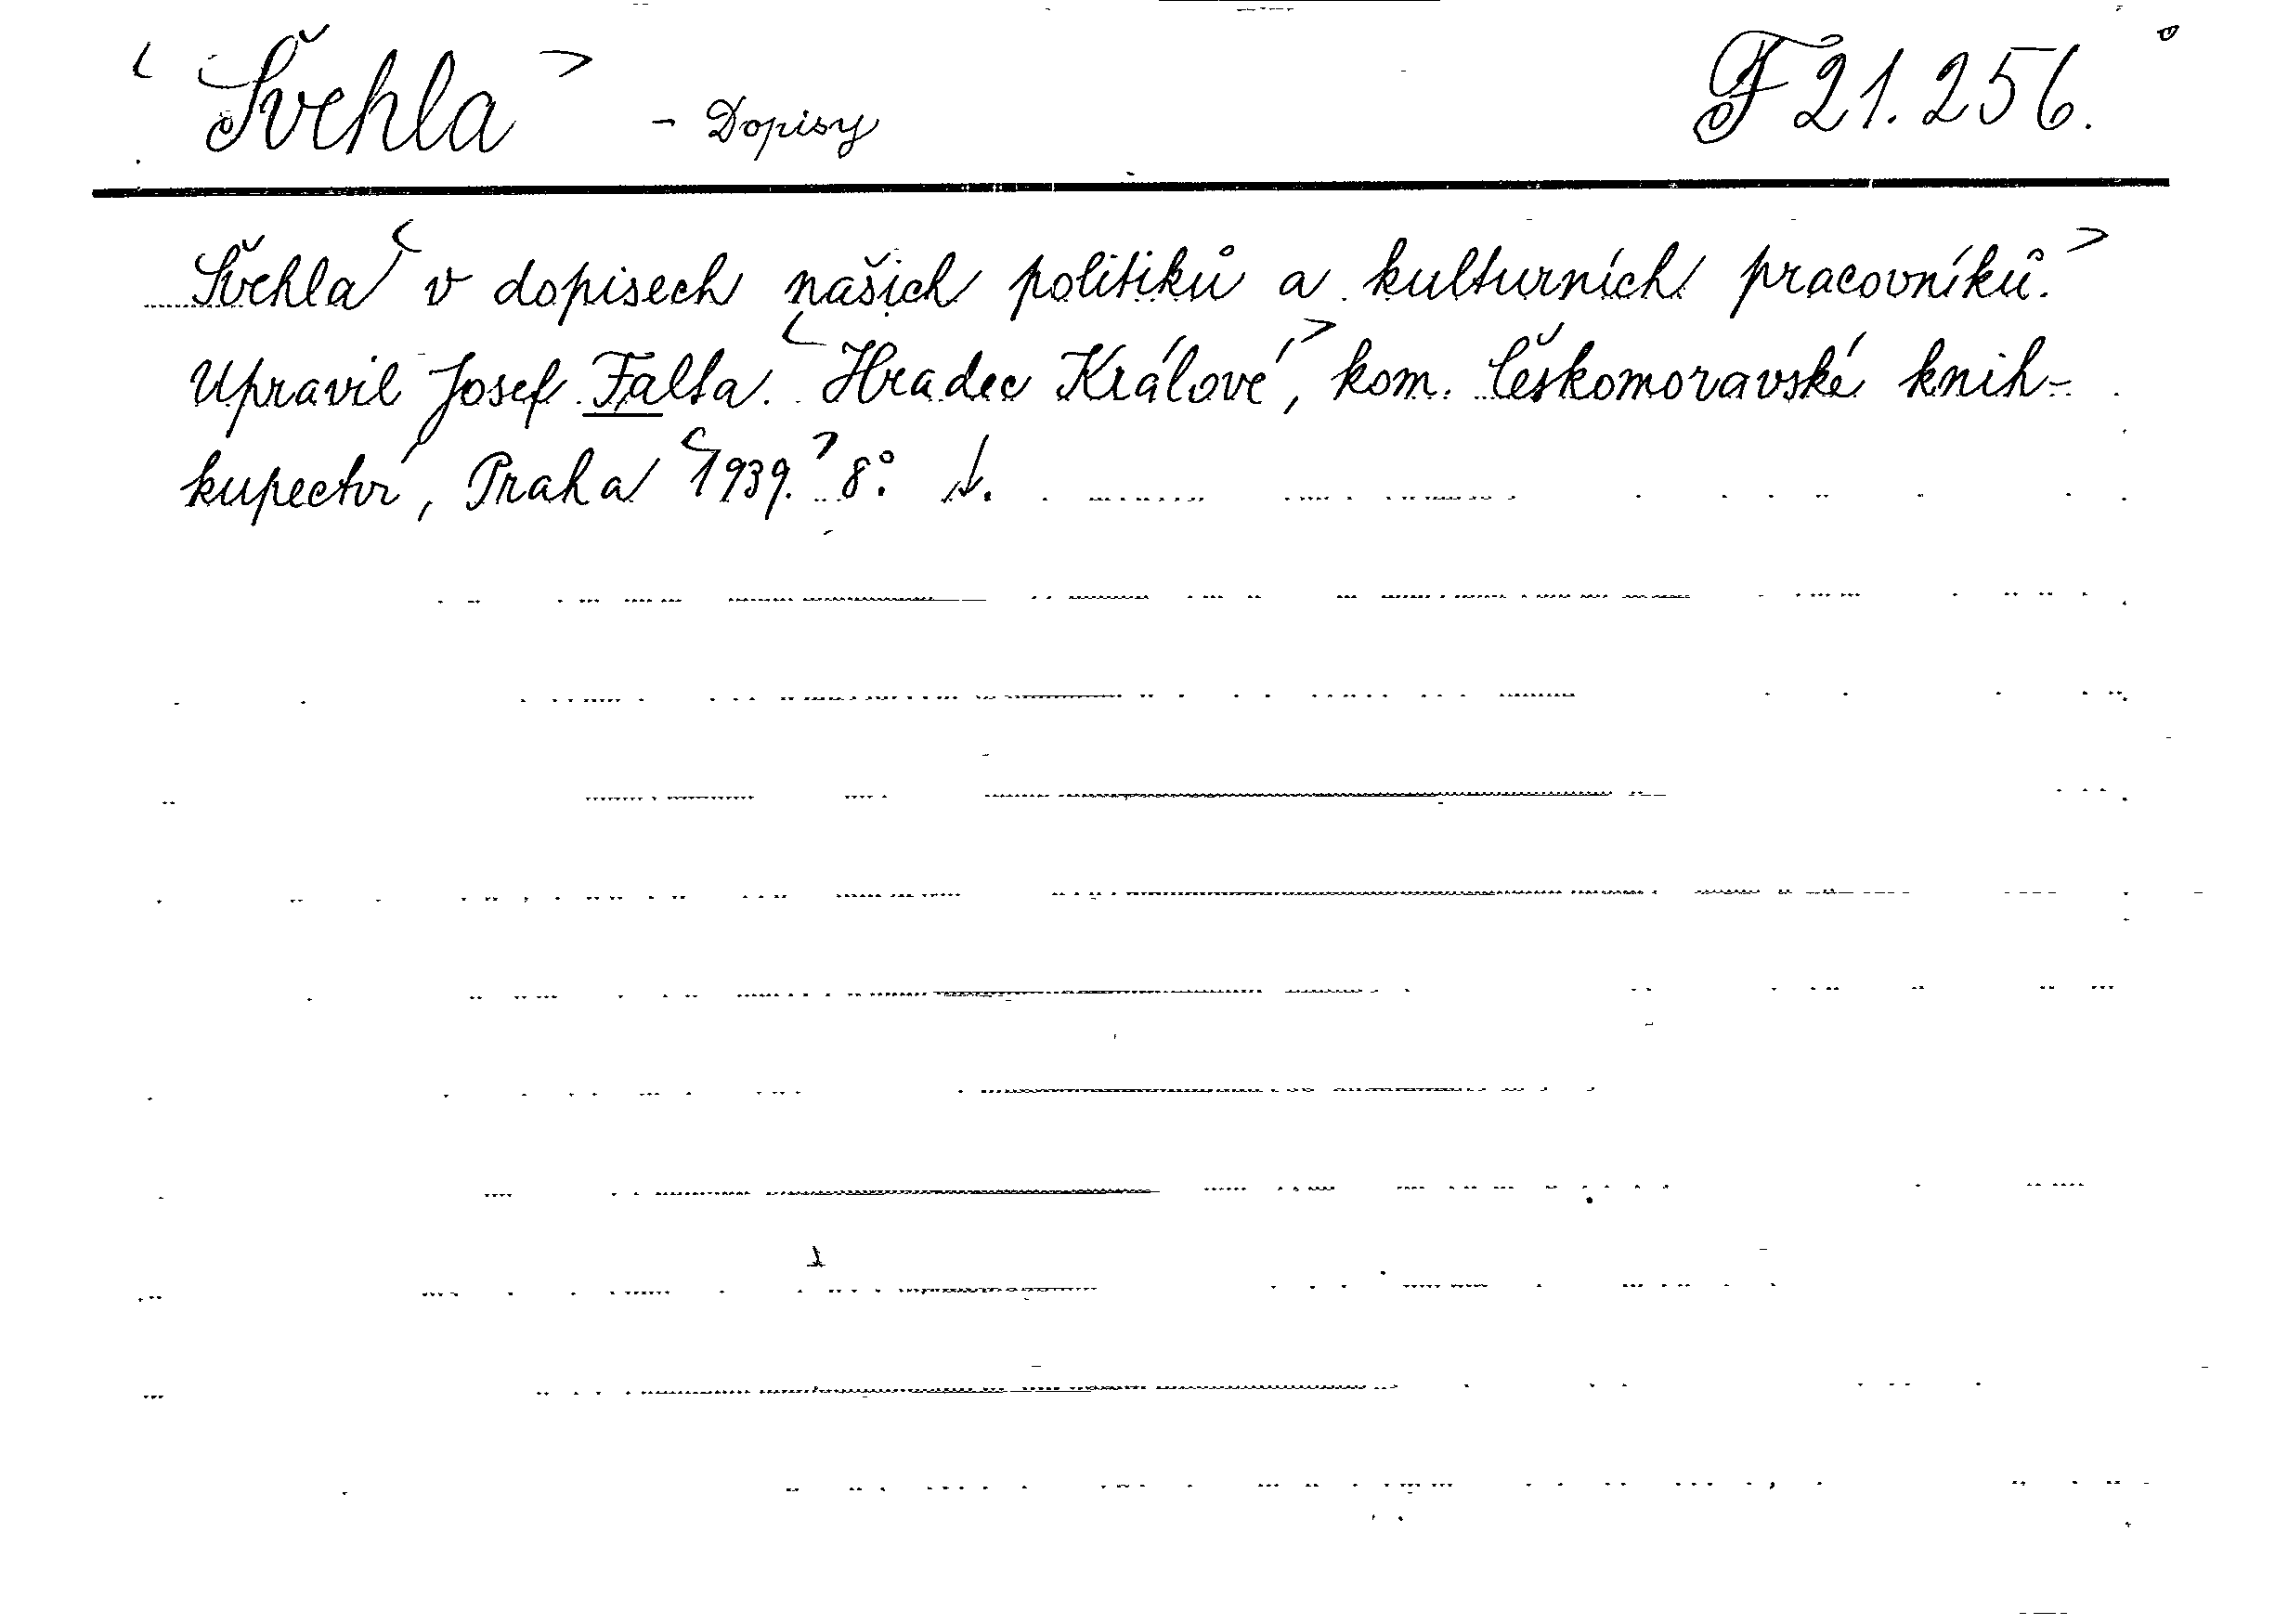 <Švehla> - Dopisy F 21.256.
Švehla <v dopisech našich politiků a kulturních pracovníků.>
Upravil Josef Falta. <Hradec Králové,> kom. Českomoravské knih-
kupectví, Praha <1939.> 8°.